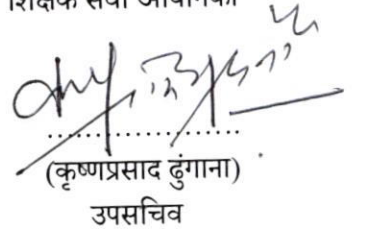 शिक्षक सेवा आयोगको
....................
(कृष्णप्रसाद ढुंगाना)
उपसचिव